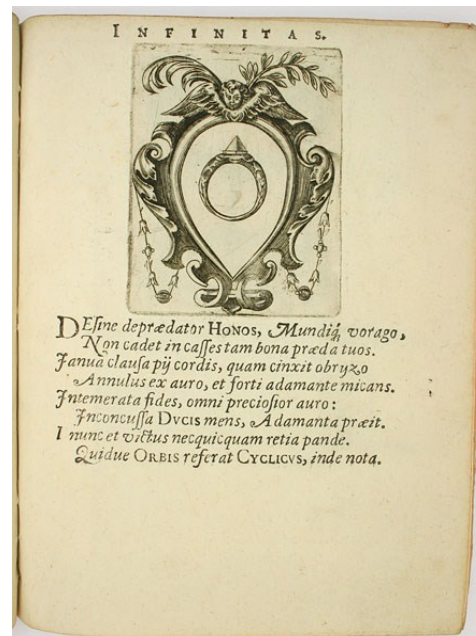 INFINITAS.
DEsine deprædator HONOS, Mundiq́; vorago,
Non cadet in casses tam bona præda tuos.
Janua clausa pij cordis, quam cinxit obryzo
Annulus ex auro, et forti adamante micans.
Intemerata fides, omni preciosior auro:
Inconcussa DVCIS mens, Adamanta præit.
I nunc et victus necquicquam retia pande.
Quidue ORBIS referat CYCLICVS, inde nota.